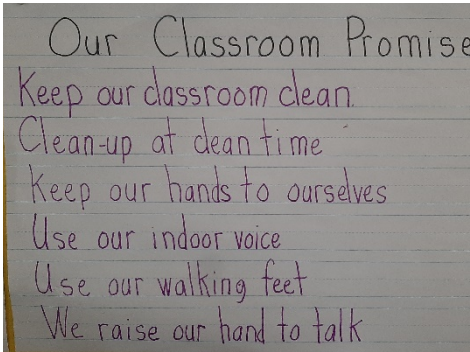 Our Classroom Promise
Keep our classroom clean.
Clean-up at clean time
Keep our hands to ourselves
Use our indoor voice
Use our walking feet
We raise our hand to talk